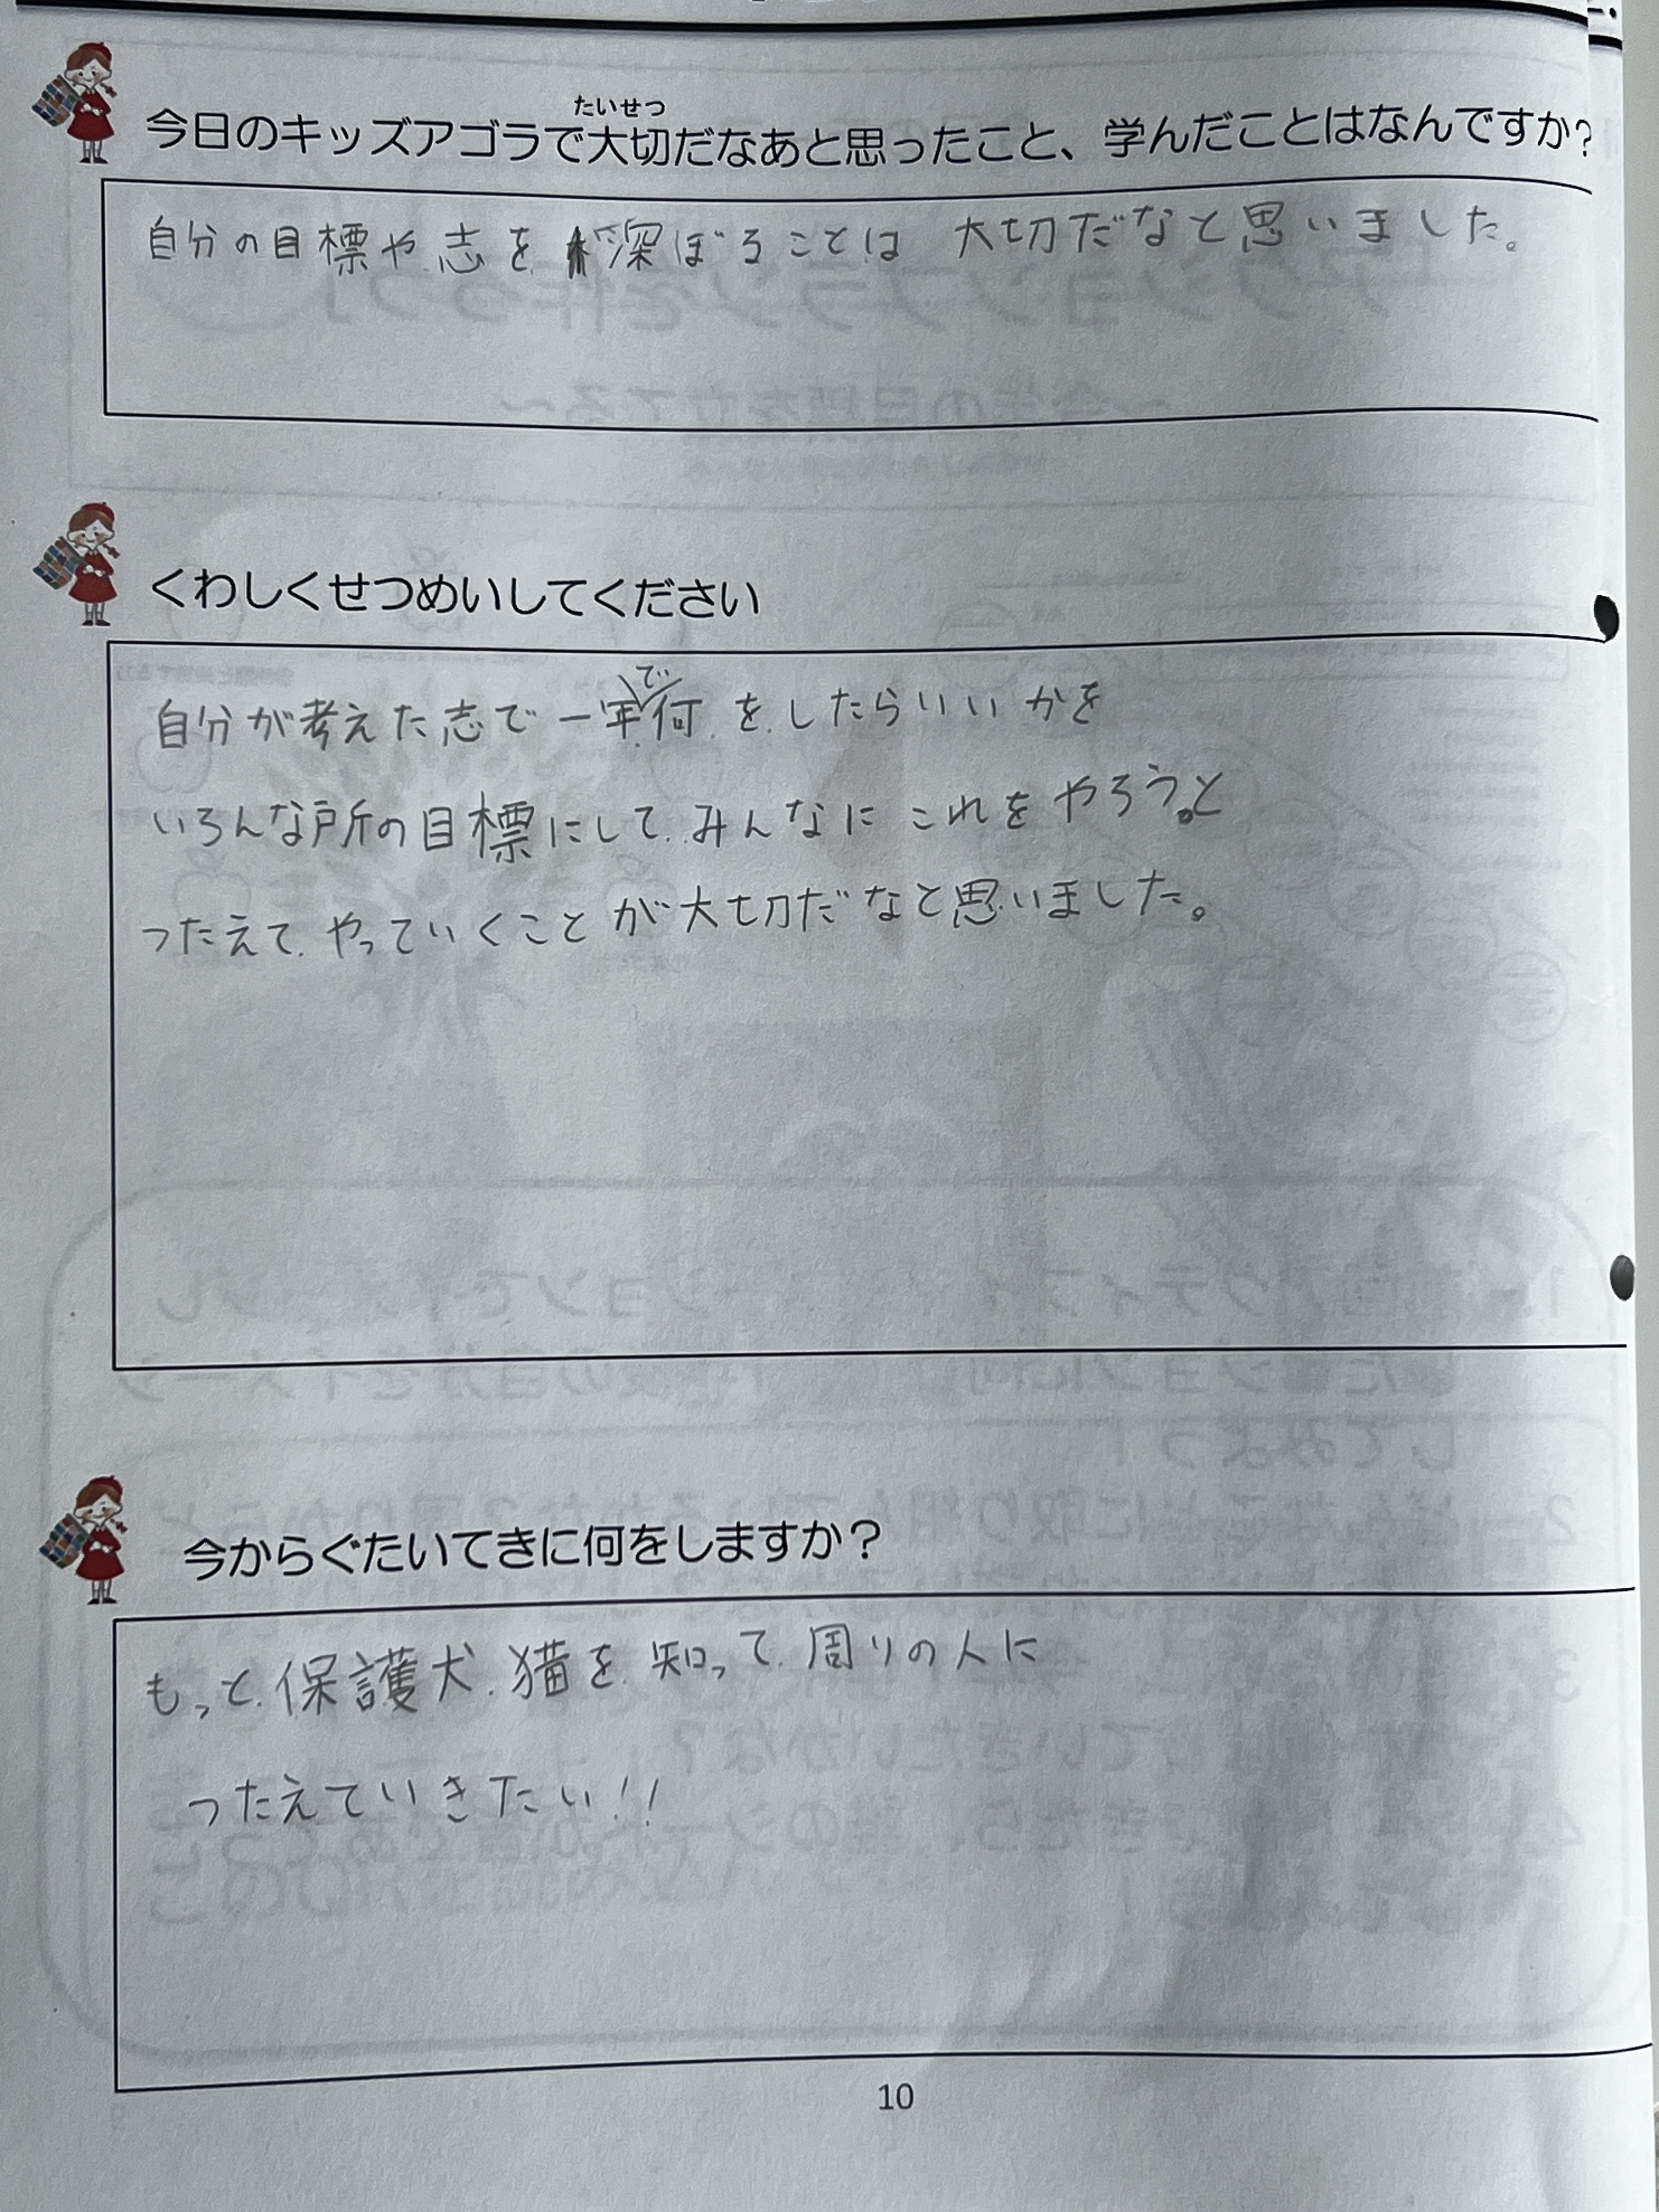 たいせつ
今日のキッズアゴラで大切だなあと思ったこと、学んだことはなんですか?
自分の目標や志を深ぼることは大切だなと思いました。
くわしくせつめいしてください
自分が考えた志で一年で何をしたらいいかを
いろんな所の目標にしてみんなにこれをやろう。と
つたえてやっていくことが大切だなと思いました。
今からぐたいてきに何をしますか?
もっと保護犬.猫を知って周りの人に
つたえていきたい!!
10